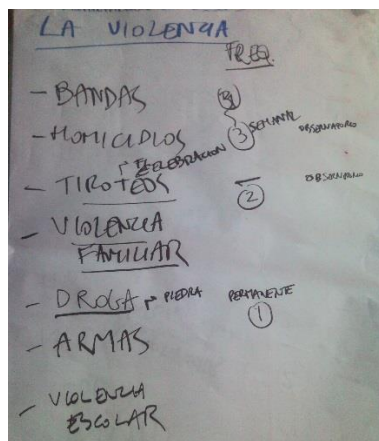 LA VIOLENCIA
FREQ.
- BANDAS
- HOMICIDIOS 3 SEMANAL OBSERVATORIO
CELEBRACION
- TIROTEOS 2
- VIOLENCIA
FAMILIAR
- DROGA PIEDRA PERMANENTE
1
- ARMAS
- VIOLENCIA
ESCOLAR